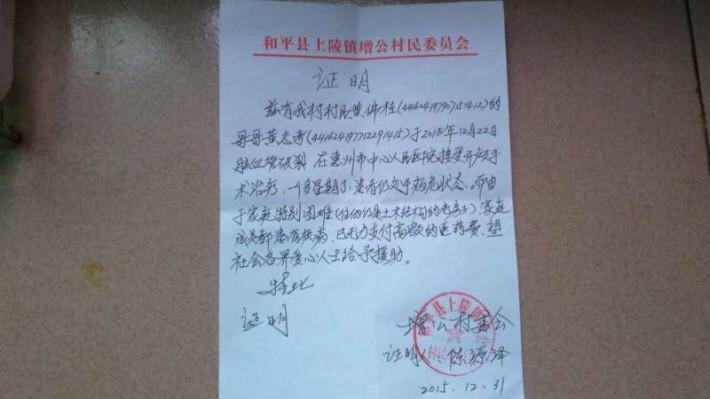 和平县上陵镇增公村民委员会
证明
兹有我村村民黄伟柱(
的
哥哥黄志
于2015年12月22日
脑血管破裂,在惠州市中心人民医院接受开颅手
术治疗,一个多星期了,患者仍处于病危状态。而由
于家庭特别困难(住的仍是土木结构的老房子),家庭
成员都患有疾病,已无力支付高额的医药费,望
社会各界爱心人士给予援助。
特此
证明
增公村委会
证明人:陈源泽
2015.12.31